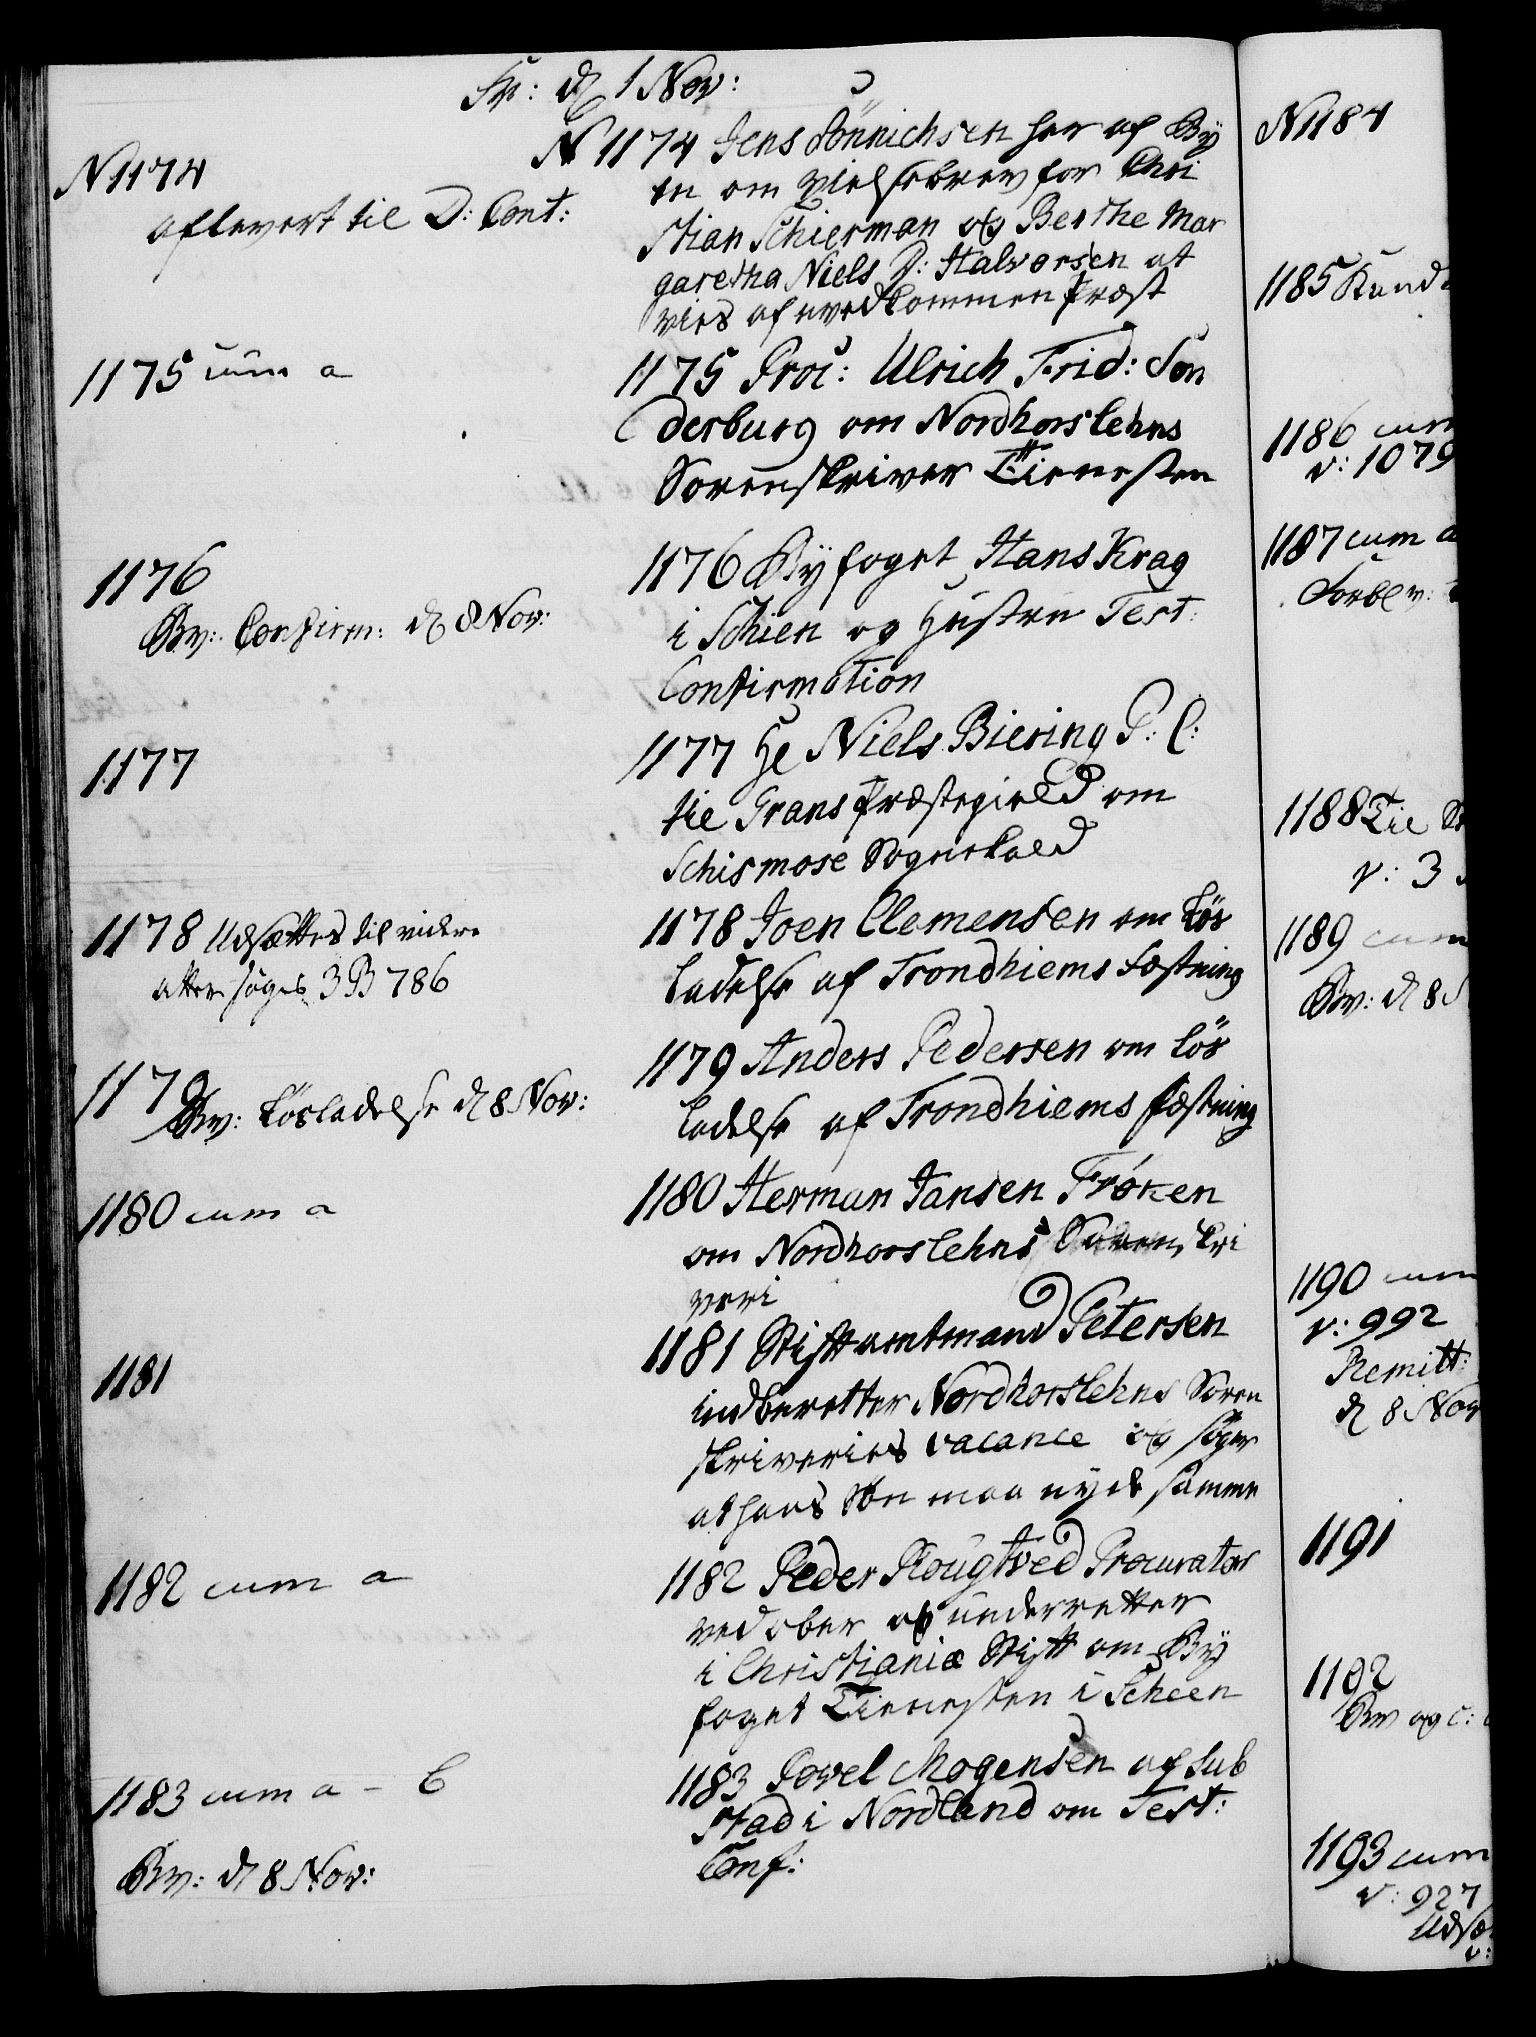 Fr: d 1 Nov:
N 1174
aflevert til D: Cont:
N 1174 Jens Sönnichsen har af By
en om Vielsebrev for Chri
stian Schierman og Berthe Mar
garetha Niels D: Halvorsen at
vies af uvedkommen Præst
1175 cum a
1175 Proc: Ulrich Frid: Son
derburg om Nordhorslehns
Sorenskriver Tienesten
1176
Bv: Confirm: d 8 Nov:
1176 Byfoget Hans Krag
i Schien og Hustru Test:
Confirmation
1177
1177 He Niels Biering P: C:
til Trans Præstegield om
Schismose Sognekald
1178 Udsættes til videre
atter søges 3 B 786
1178 Joen Clemensen om Løs
ladelse af Trondhiems Fæstning
1179
Bv: Løsladelse d 8 Nov:
1179 Anders Pedersen om Løs
ladelse af Trondhiems fæstning
1180 cum a
1180 Herman Jansen Frøken
om Nordhorslehns Sorenskri
veri
1181
1181 Stiftamtmand Petersen
indberetter Nordhorslehns Soren
skriveries vacance og søger
at hans Søn maa nyde samme
1182 cum a
1182 Peder Rougtved Procurator
ved ober og underretter
i Christianiæ Stift om By
foget Tienesten i Scheen
1183 cum a - c
Bv: d 8 Nov:
1183 Povel Mogensen af
stad i Nordland om Test:
Conf:
N 1184
1185
1186 cum
v: 1079
1187 cum a
1188 Til
v: 3
1189 cum
Bv: d 8
1190 cum
v: 992
Remitt:
d 8 Nov
1191
1192
Bv og c:
1193 cum
v: 927